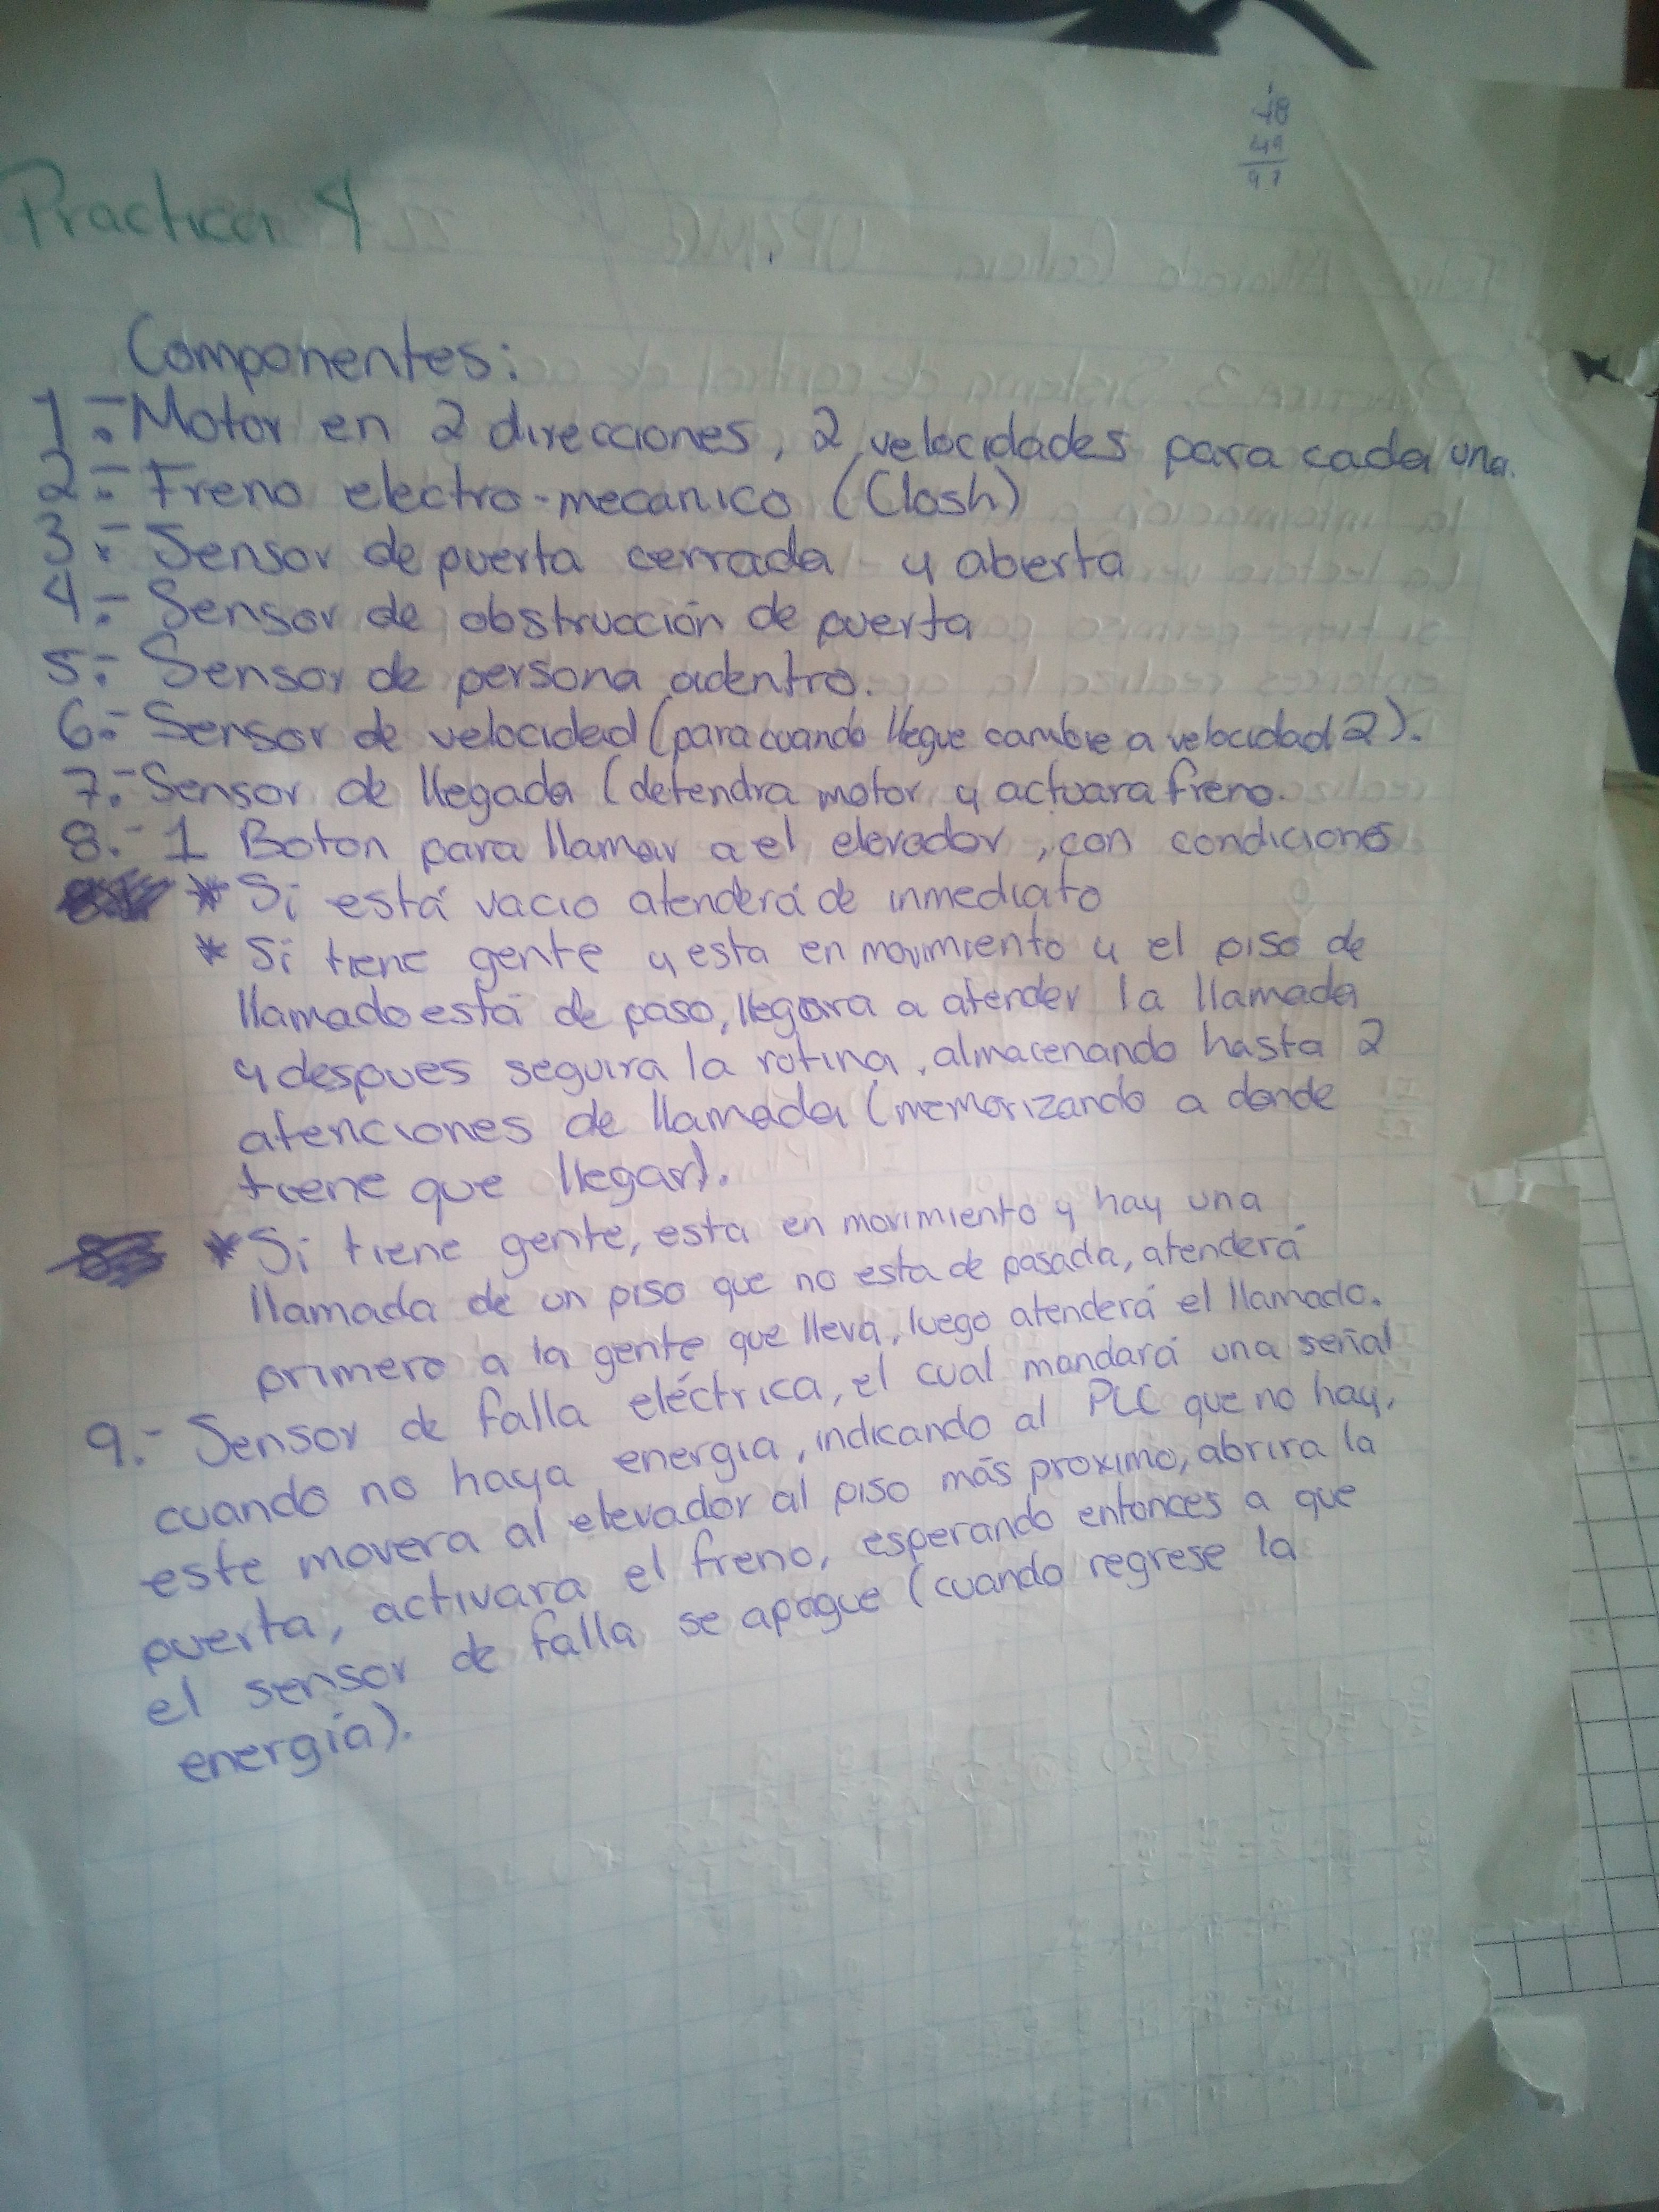 48
49
97
Practica 4
Componentes:
1.- Motor en 2 direcciones, 2 velocidades para cada una.
2.- Freno electro-mecanico (Closh)
3.- Sensor de puerta cerrada y aberta
4.- Sensor de obstrucción de puerta
5.- Sensor de persona adentro.
6.- Sensor de velocidad (para cuando llegue cambie a velocidad 2).
7.- Sensor de llegada (detendra motor y actuara freno.
8.- 1 Boton para llamar a el elevador, con condiciones
* Si está vacio atenderá de inmediato
* Si tiene gente y esta en movimiento y el piso de
llamado está de paso, llegara a atender la llamada
y despues seguira la rutina, almacenando hasta 2
atenciones de llamada (memorizando a donde
tiene que llegar).
* Si tiene gente, esta en movimiento y hay una
llamada de un piso que no esta de pasada, atenderá
primero a la gente que lleva, luego atenderá el llamado.
9.- Sensor de falla eléctrica, el cual mandará una señal
cuando no haya energia, indicando al PLC que no hay,
este movera al elevador al piso más proximo, abrira la
puerta, activara el freno, esperando entonces a que
el sensor de falla se apague (cuando regrese la
energía).